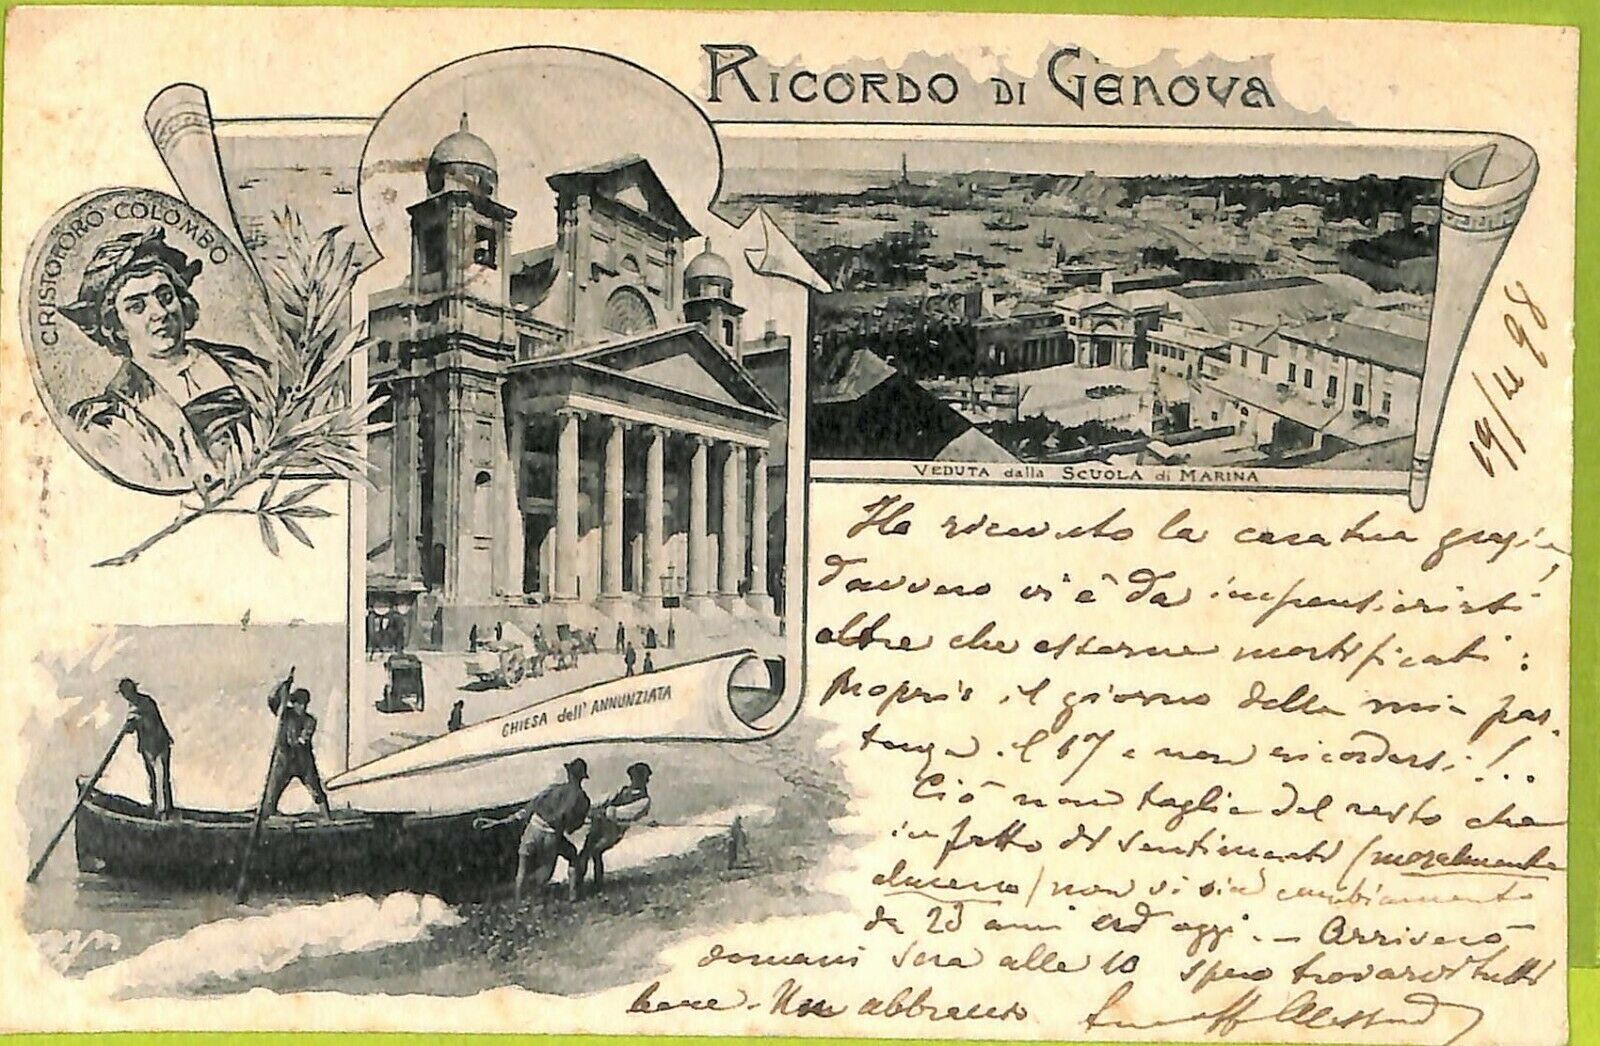 RICORDO DI GENOVA
CRISTOFORO COLOMBO
VEDUTA dalla SCUOLA di MARINA
CHIESA dell' ANNUNZIATA
19/4 98
Ho ricevuto la cara tua grazie,
davvero vi è da impensierirsi
oltre che esserne mortificati:
Proprio il giorno della mia par-
tenza il 17 e non ricordarsi!..
Ciò non toglie del resto che
in fatto di sentimenti (moralmente
almeno) non vi sia cambiamento
da 23 anni ad oggi. - Arriverò
domani sera alle 10 spero trovarvi tutti
bene. Un abbraccio